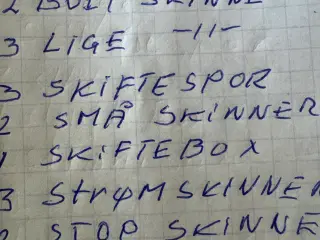 2 BUET SKINNE
3 LIGE -11-
3 SKIFTESPOR
2 SMÅ SKINNER
1 SKIFTEBOX
3 StrøMSKINNER
2 STOP SKINNE